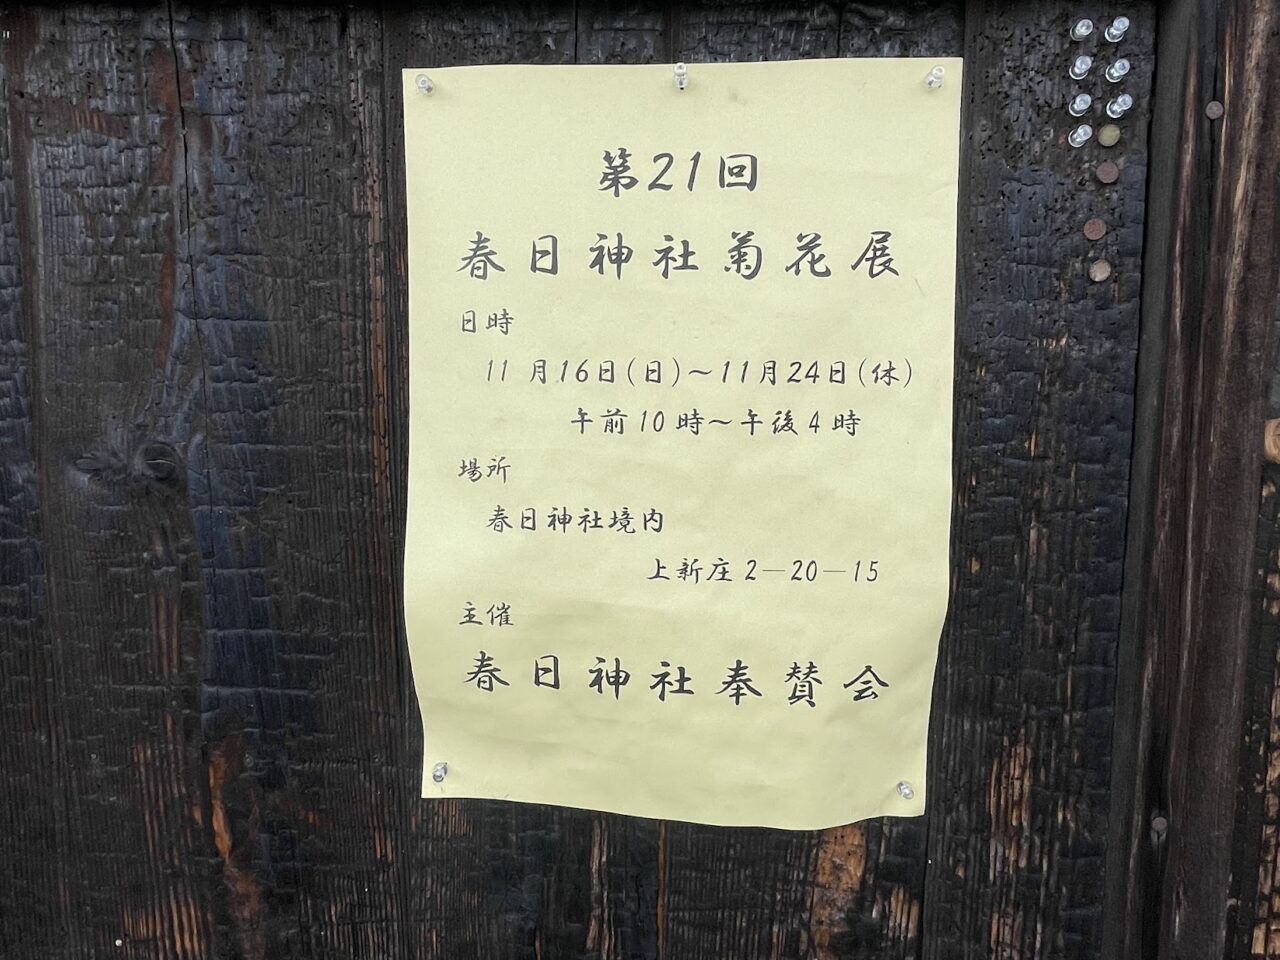 第21回
春日神社菊花展
日時
11月16日(日)～11月24日(休)
午前10時～午後4時
場所
春日神社境内
上新庄2－20－15
主催
春日神社奉賛会